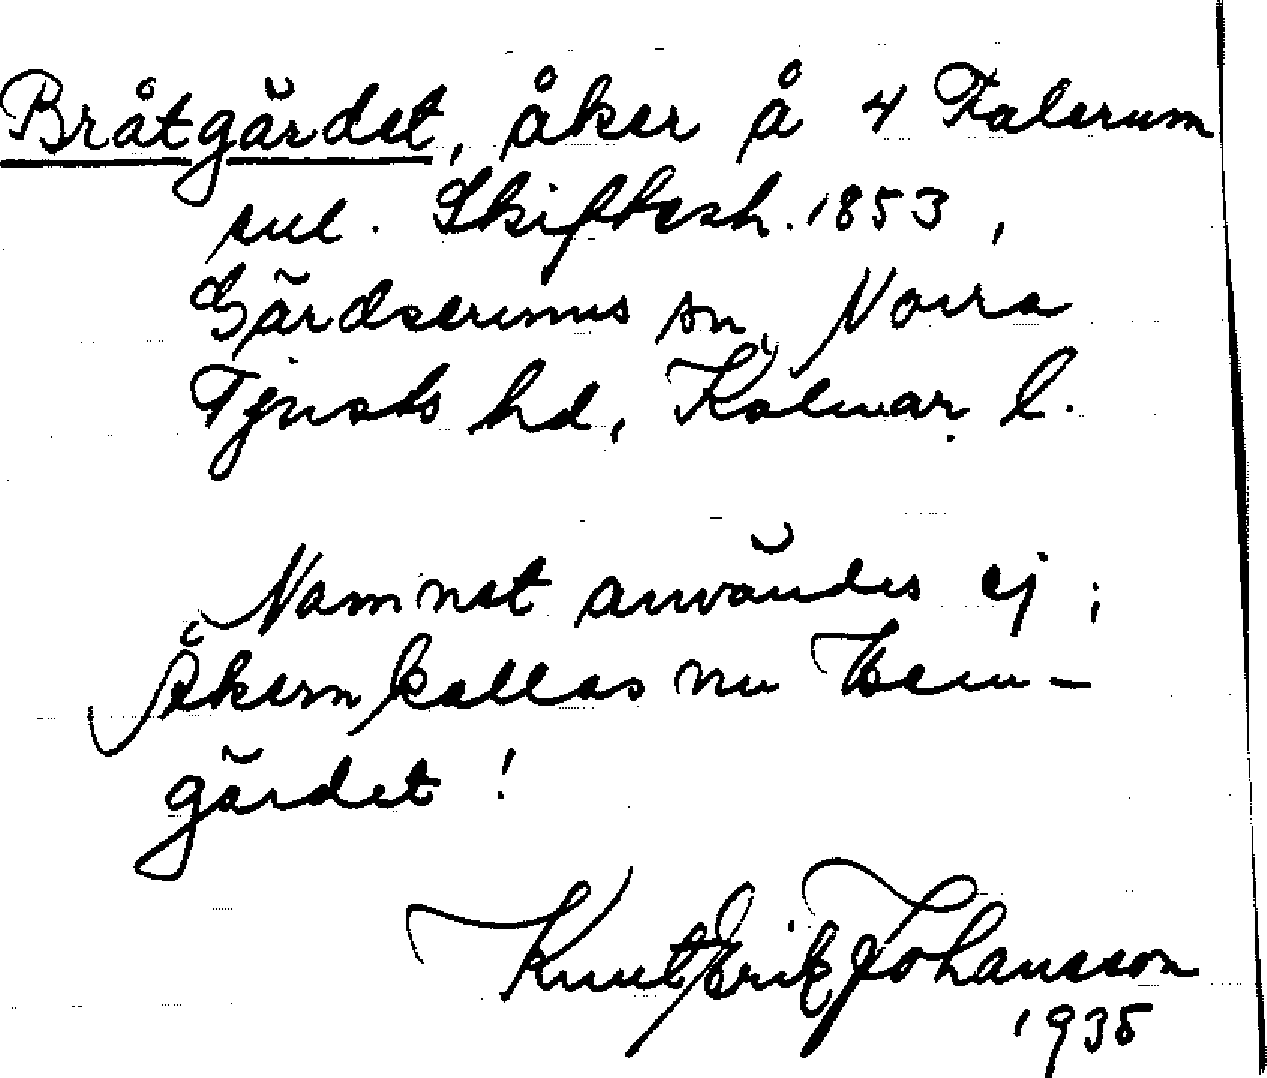 Bråtgärdet, åker å 4 Falerum
enl. Skiftbesk. 1853,
Gärdserums sn, Norra
Tjusts hd, Kalmar l.
Namnet användes ej;
Åkern kallas nu Hem-
gärdet!
Knut Erik Johansson
1935